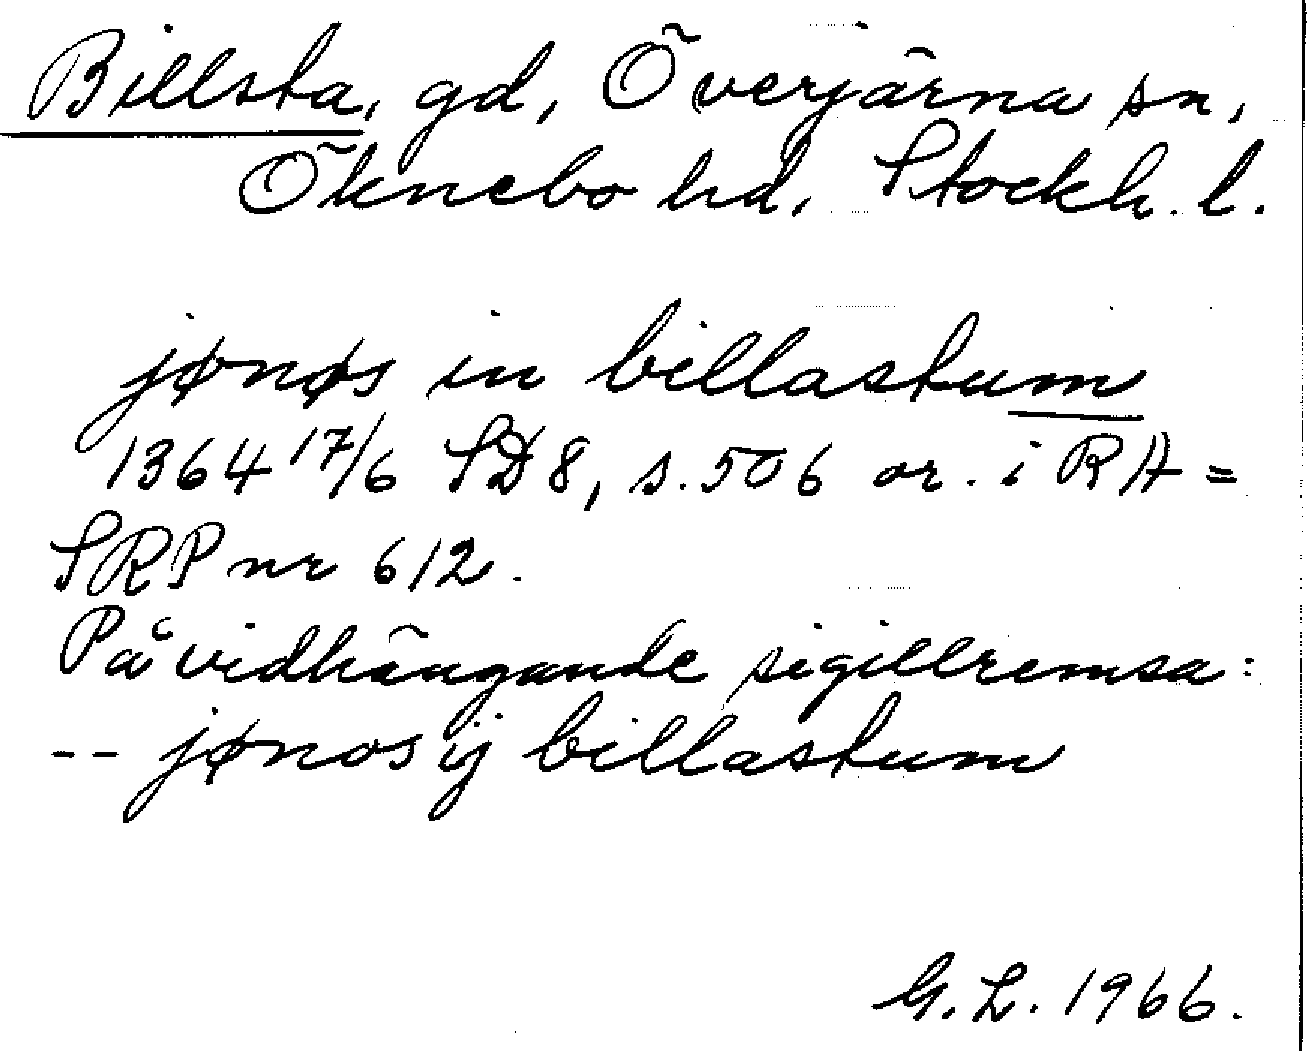 Billsta, gd, Överjärna sn,
Öknebo hd, Stockh. l.
jønøs in billastum
1364 17/6 SD 8, s. 506 or. i RA =
SRP nr 612.
På vidhängande sigillremsa:
-- jønos ij billastum
G. L. 1966.